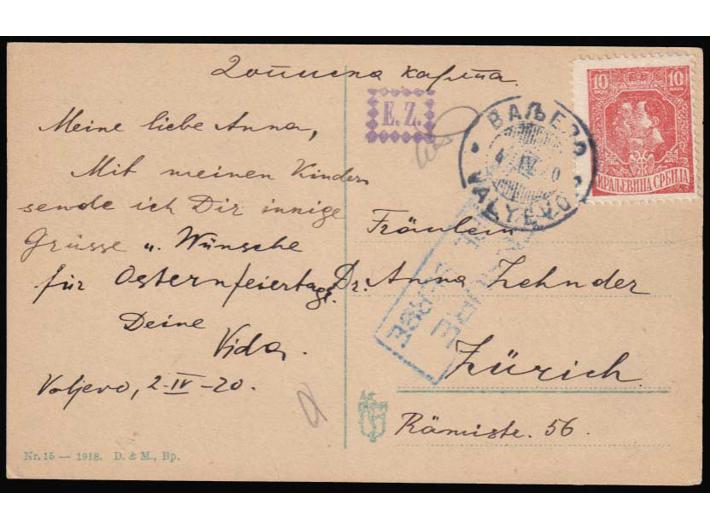 Дописна карта.
Meine liebe Anna,
Mit meinen Kindern
sende ich Dir innige
Grüsse u. Wünsche
für Osternfeiertage.
Deine
Vida.
Valjevo, 2-IV-20.
Nr. 15 — 1918. D. & M., Bp.
E. Z.
ВАЉЕВО
4 IV 20
VALYEVO
10 10
КРАЉЕВИНА СРБИЈА
Fräulein
Dr. Anna Zehnder
Zürich
Rämistr. 56.